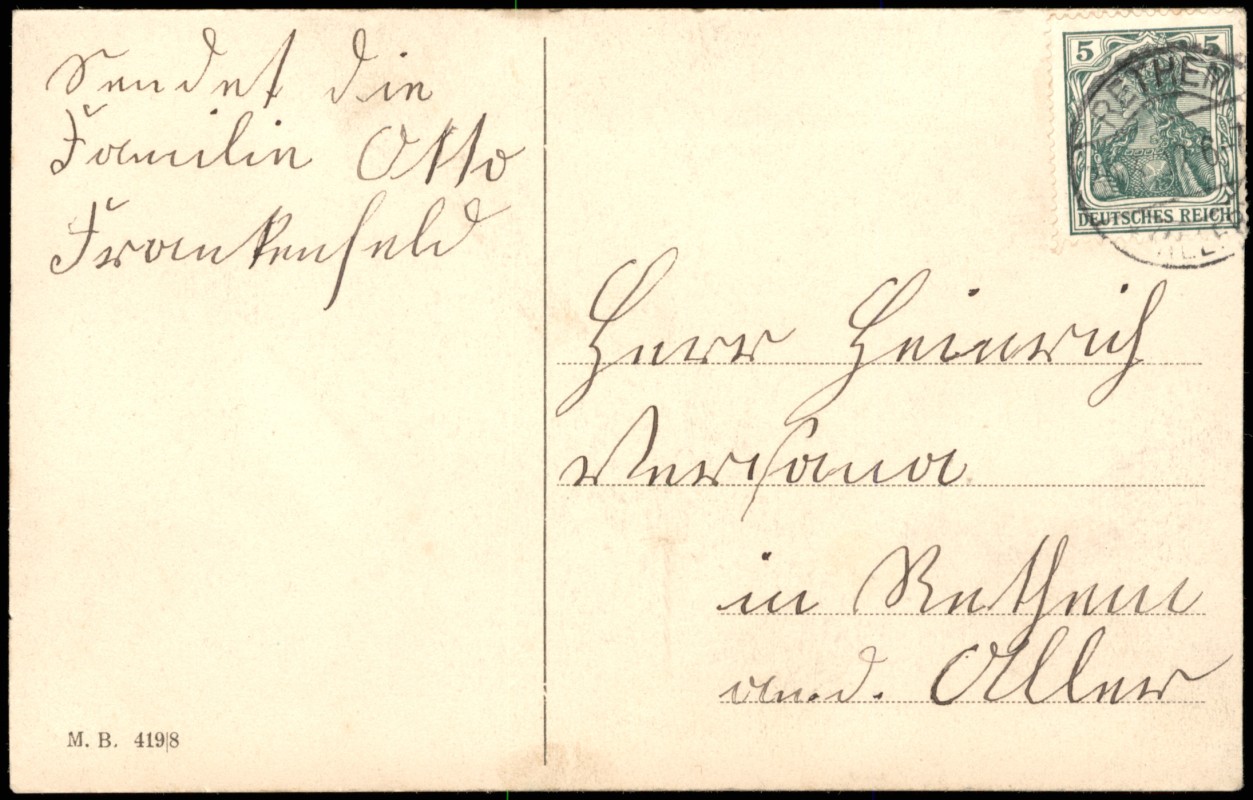 Sendet die
Familie Otto
Frankenfeld
M. B. 419|8
5 5
DEUTSCHES REICH
RETHEM
Herr Heinrich
in Rethem
an. d. Aller